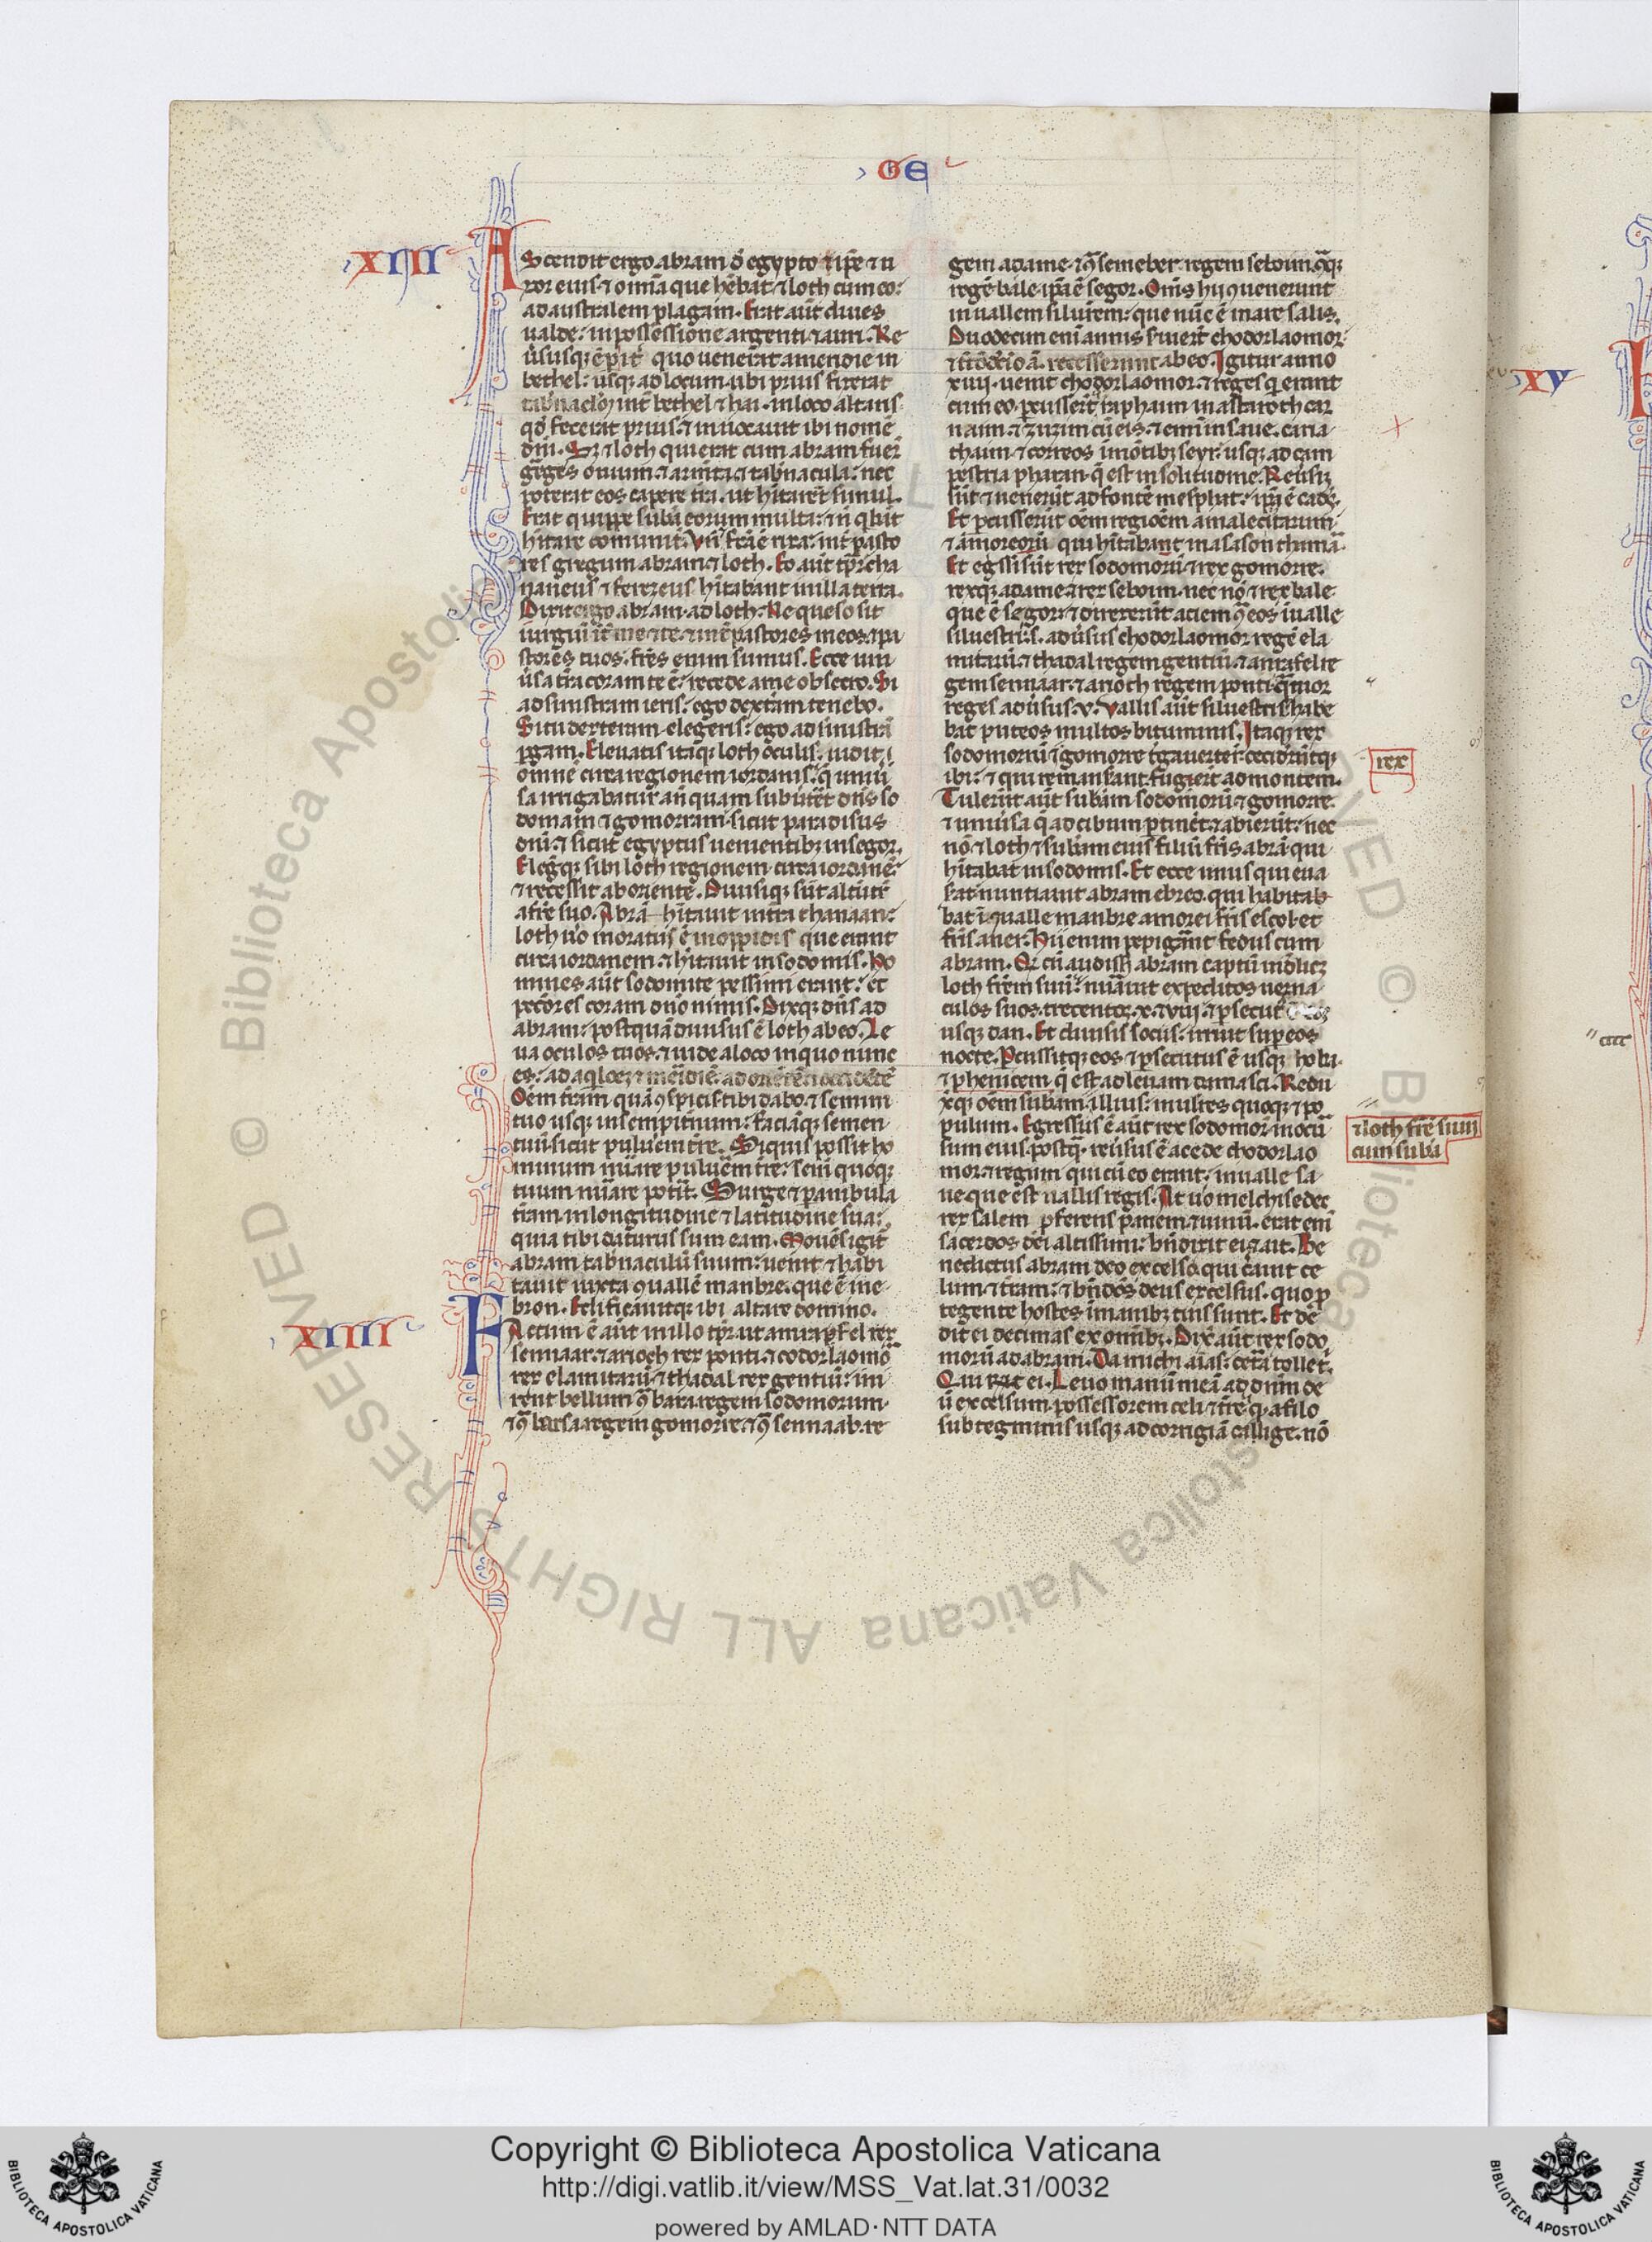 GE
XIII
AScendit ergo abram de egypto ipse & u
xor eius & omia que hebat & loth cum eo:
ad australem plagam. Erat aut dives
valde: in possessione argenti & auri. Re
usus q; e p it quo venerat a meridie in
bethel: usq; ad locum ubi prius fixerat
tabnaclm int bethel & hai. in loco altaris
qd fecerat prius & invocavit ibi nome
dni. Sz & loth qui erat cum abram fuer
greges ovium & armta & tabnacula: nec
poterat eos capere tra. ut hitaret simul.
Erat quippe suba eorum multa: & n qbat
hitare comunit. Vn & fca e rixa: int pasto
res gregum abram & loth. Eo aut tpr cha
naneus & ferezeus hitabant in illa terra.
Dixit ergo abram ad loth. Ne queso sit
iurgiu it me & te. & int pastores meos & pa
stores tuos. fres enim sumus. Ecce uni
usa tra coram te e: recede a me obsecro. Si
ad sinistram ieris: ego dextam tenebo.
Si tu dexteram elegeris: ego ad sinistra
pgam. Elevatis itaq; loth oculis. vidit
omne circa regionem iordanis: q univ
sa irrigabatur an quam subverteret dns so
domam & gomorram. sicut paradisus
dni. & sicut egyptus venientib; in segor.
Elegq; sibi loth regionem circa iordane:
& recessit ab oriente. Divisiq; sut altut
a fre suo. Abra hitavit in tra chanaan:
loth uo moratus e in oppidis que erant
circa iordanem. & hitavit in sodomis. Ho
mines aut sodomite pessimi erant: et
peccores coram dno nimis. Dixq; dns ad
abram: postqua divisus e loth ab eo. Le
va oculos tuos. & vide a loco in quo nunc
es: ad aqlone & meridie. ad oriente & occidete
Oem tram qua cspicis tibi dabo. & semini
tuo usq; in sempitnum: faciaq; semen
tuu sicut pulvem tre. Si quis possit ho
minum nuare pulvem tre: sem quoq;
tuum nuare potit. Surge & pambula
tram in longitudine & latitudine sua:
quia tibi daturus sum eam. Moves igit
abram tabnaculu suum: venit & habi
tavit iuxta qvalle manbre. que e in e
bron. Edificavitq; ibi altare domino.
XIIII
FActum e aut in illo tpr. ut amraphel rex
sennaar. & arioch rex ponti. & codorlaomo
rex elamitaru. & thadal rex gentiu: ini
rent bellum q bara. regem sodomorum.
& q barsa regem gomorre. & q sennaab. re
gem adame. & q semeber regem seboim. qq;
rege bale. ipa e segor. Oms hii qvenerunt
in vallem silvrem: que nuc e mare salis.
Duodecim eni annis svierut chodorlaomor
& recesserunt ab eo. Igitur anno
xiiij. venit chodorlaomor & reges q erant
cum eo. pcusserut raphaim in astaroth car
naim. & zuzim cu eis. & emim in saue. caria
thaim. & correos i motib; seyr. usq; ad cam
pestria pharan. q est in solitudine. Reusiq;
sut & venerut ad fonte mesphat: ipa e cades.
Et pcusserut oem regioem amalecitarum
& amoreoru qui hitabant in asason thama.
Et egssi sut rex sodomoru & rex gomorre.
rexq; adame. & rex seboim. nec no & rex bale
que e segor. & direxerut aciem q eos i valle
silvestris. adusus chodorlaomor rege ela
mitaru. & thadal regem gentiu. & amrafel re
gem sennaar. & arioch regem ponti. qtuor
reges adusus v. Vallis aut silvestris habe
bat puteos multos bituminis. Itaq; rex
sodomoru & gomorre tgauertert. cecideruntq;
ibi: & qui remansant fugierut ad montem.
Tulerut aut subam sodomoru & gomorre.
& univsa q ad cibum ptinet. & abierut: nec
no & loth & subam eius filiu fris abra qui
hitabat in sodomis. Et ecce unus qui eva
sat nuntiavit abram ebreo. qui habitab
bat i qvalle manbre amorei fris escol et
fris aner. Hii enim pepigant fedus cum
abram. Qd cu audiss; abram captu vidlicz
loth frem suu: nuavit expeditos verna
culos suos. trecentos. x. & viij. & psecut e eos
usq; dan. Et divisis sociis: irruit sup eos
nocte. Pcussitq; eos & psecutus e usq; hoba.
& phenicem q est ad levam damasci. Redu
xq; oem subam illius: mulres quoq; & po
pulum. Egressus e aut rex sodomor. in occu
sum eius. postq reusus e a cede chodorlao
mor. & regum qui cu eo erant: in valle sa
ve que est vallis regis. At uo melchisedec
rex salem pferens panem & vinu. erat eni
sacerdos dei altissimi: bndixit ei & ait. Be
nedictus abram deo excelso. qui cavit ce
lum & tram: & bndcs deus excelsus. quo p
tegente hostes i manib; tuis sunt. Et de
dit ei decimas ex omib;. Dix aut rex sodo
moru ad abram. Da michi aias: cetra tolle t.
Qui ei. Levo manu mea ad dnm de
u excelsum possessorem celi & tre. q a filo
subtegminis usq; ad corrigia callige. no
rex
& loth fre suu
cum suba
XV
Copyright © Biblioteca Apostolica Vaticana
http://digi.vatlib.it/view/MSS_Vat.lat.31/0032
powered by AMLAD·NTT DATA
BIBLIOTECA APOSTOLICA VATICANA
BIBLIOTECA APOSTOLICA VATICANA
© Biblioteca Apostolica Vaticana ALL RIGHTS RESERVED